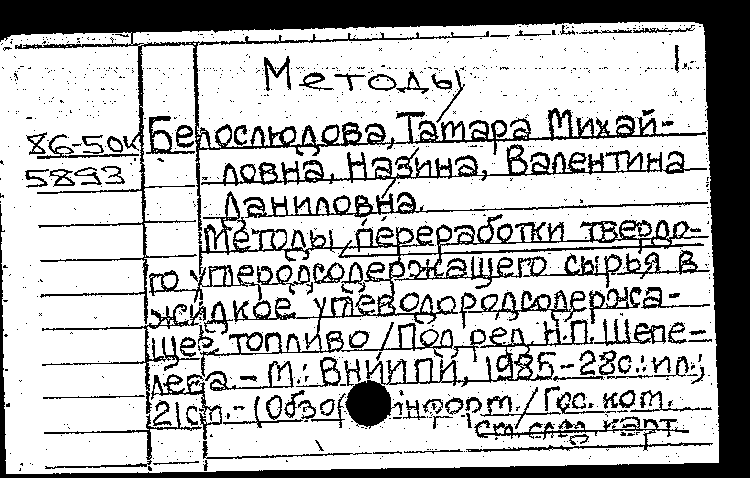 1.
Методы
86-50к Белослюдова, Тамара Михай-
5893 ловна, Назина, Валентина
Даниловна.
Методы переработки твердо-
го углеродсодержащего сырья в
жидкое углеводородсодержа-
щее топливо / Под ред. Н.П. Шепе-
лева. - М.: ВНИИПИ, 1985. - 28с.: ил.;
21см. - (Обзо информ. / Гос. ком.
См. след. карт.